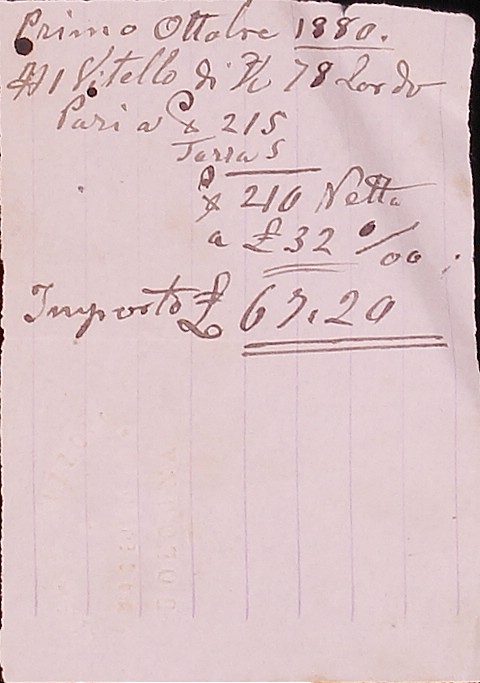 Primo Ottobre 1880.
N 1 Vitello di K 78 Lordo
Pari a ℔ 215
Tarra 5
℔ 210 Netta
a £ 32 %
Importo £ 67.20